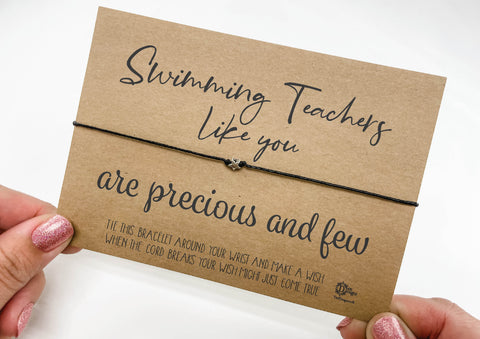 Swimming Teachers
like you
are precious and few
TIE THIS BRACELET AROUND YOUR WRIST AND MAKE A WISH
WHEN THE CORD BREAKS YOUR WISH MIGHT JUST COME TRUE